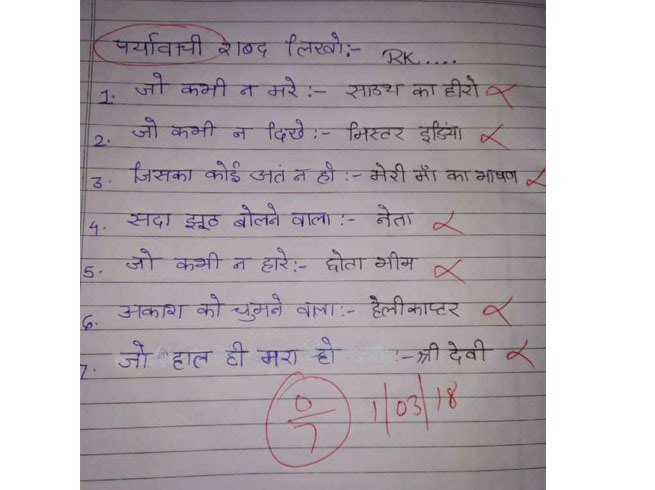 पर्यावाची शब्द लिखो:- RK.....
1. जो कभी न मरे:- साउथ का हीरो
2. जो कभी न दिखे:- मिस्टर इंडिया
3. जिसका कोई अतं न हो:- मेरी माँ का भाषण
4. सदा झूठ बोलने वाला:- नेता
5. जो कभी न हारे:- छोता भीम
6. अकाश को चुमने वाला:- हेलीकाप्टर
7. जो हाल ही मरा हो :- श्री देवी
0/7 1/03/18